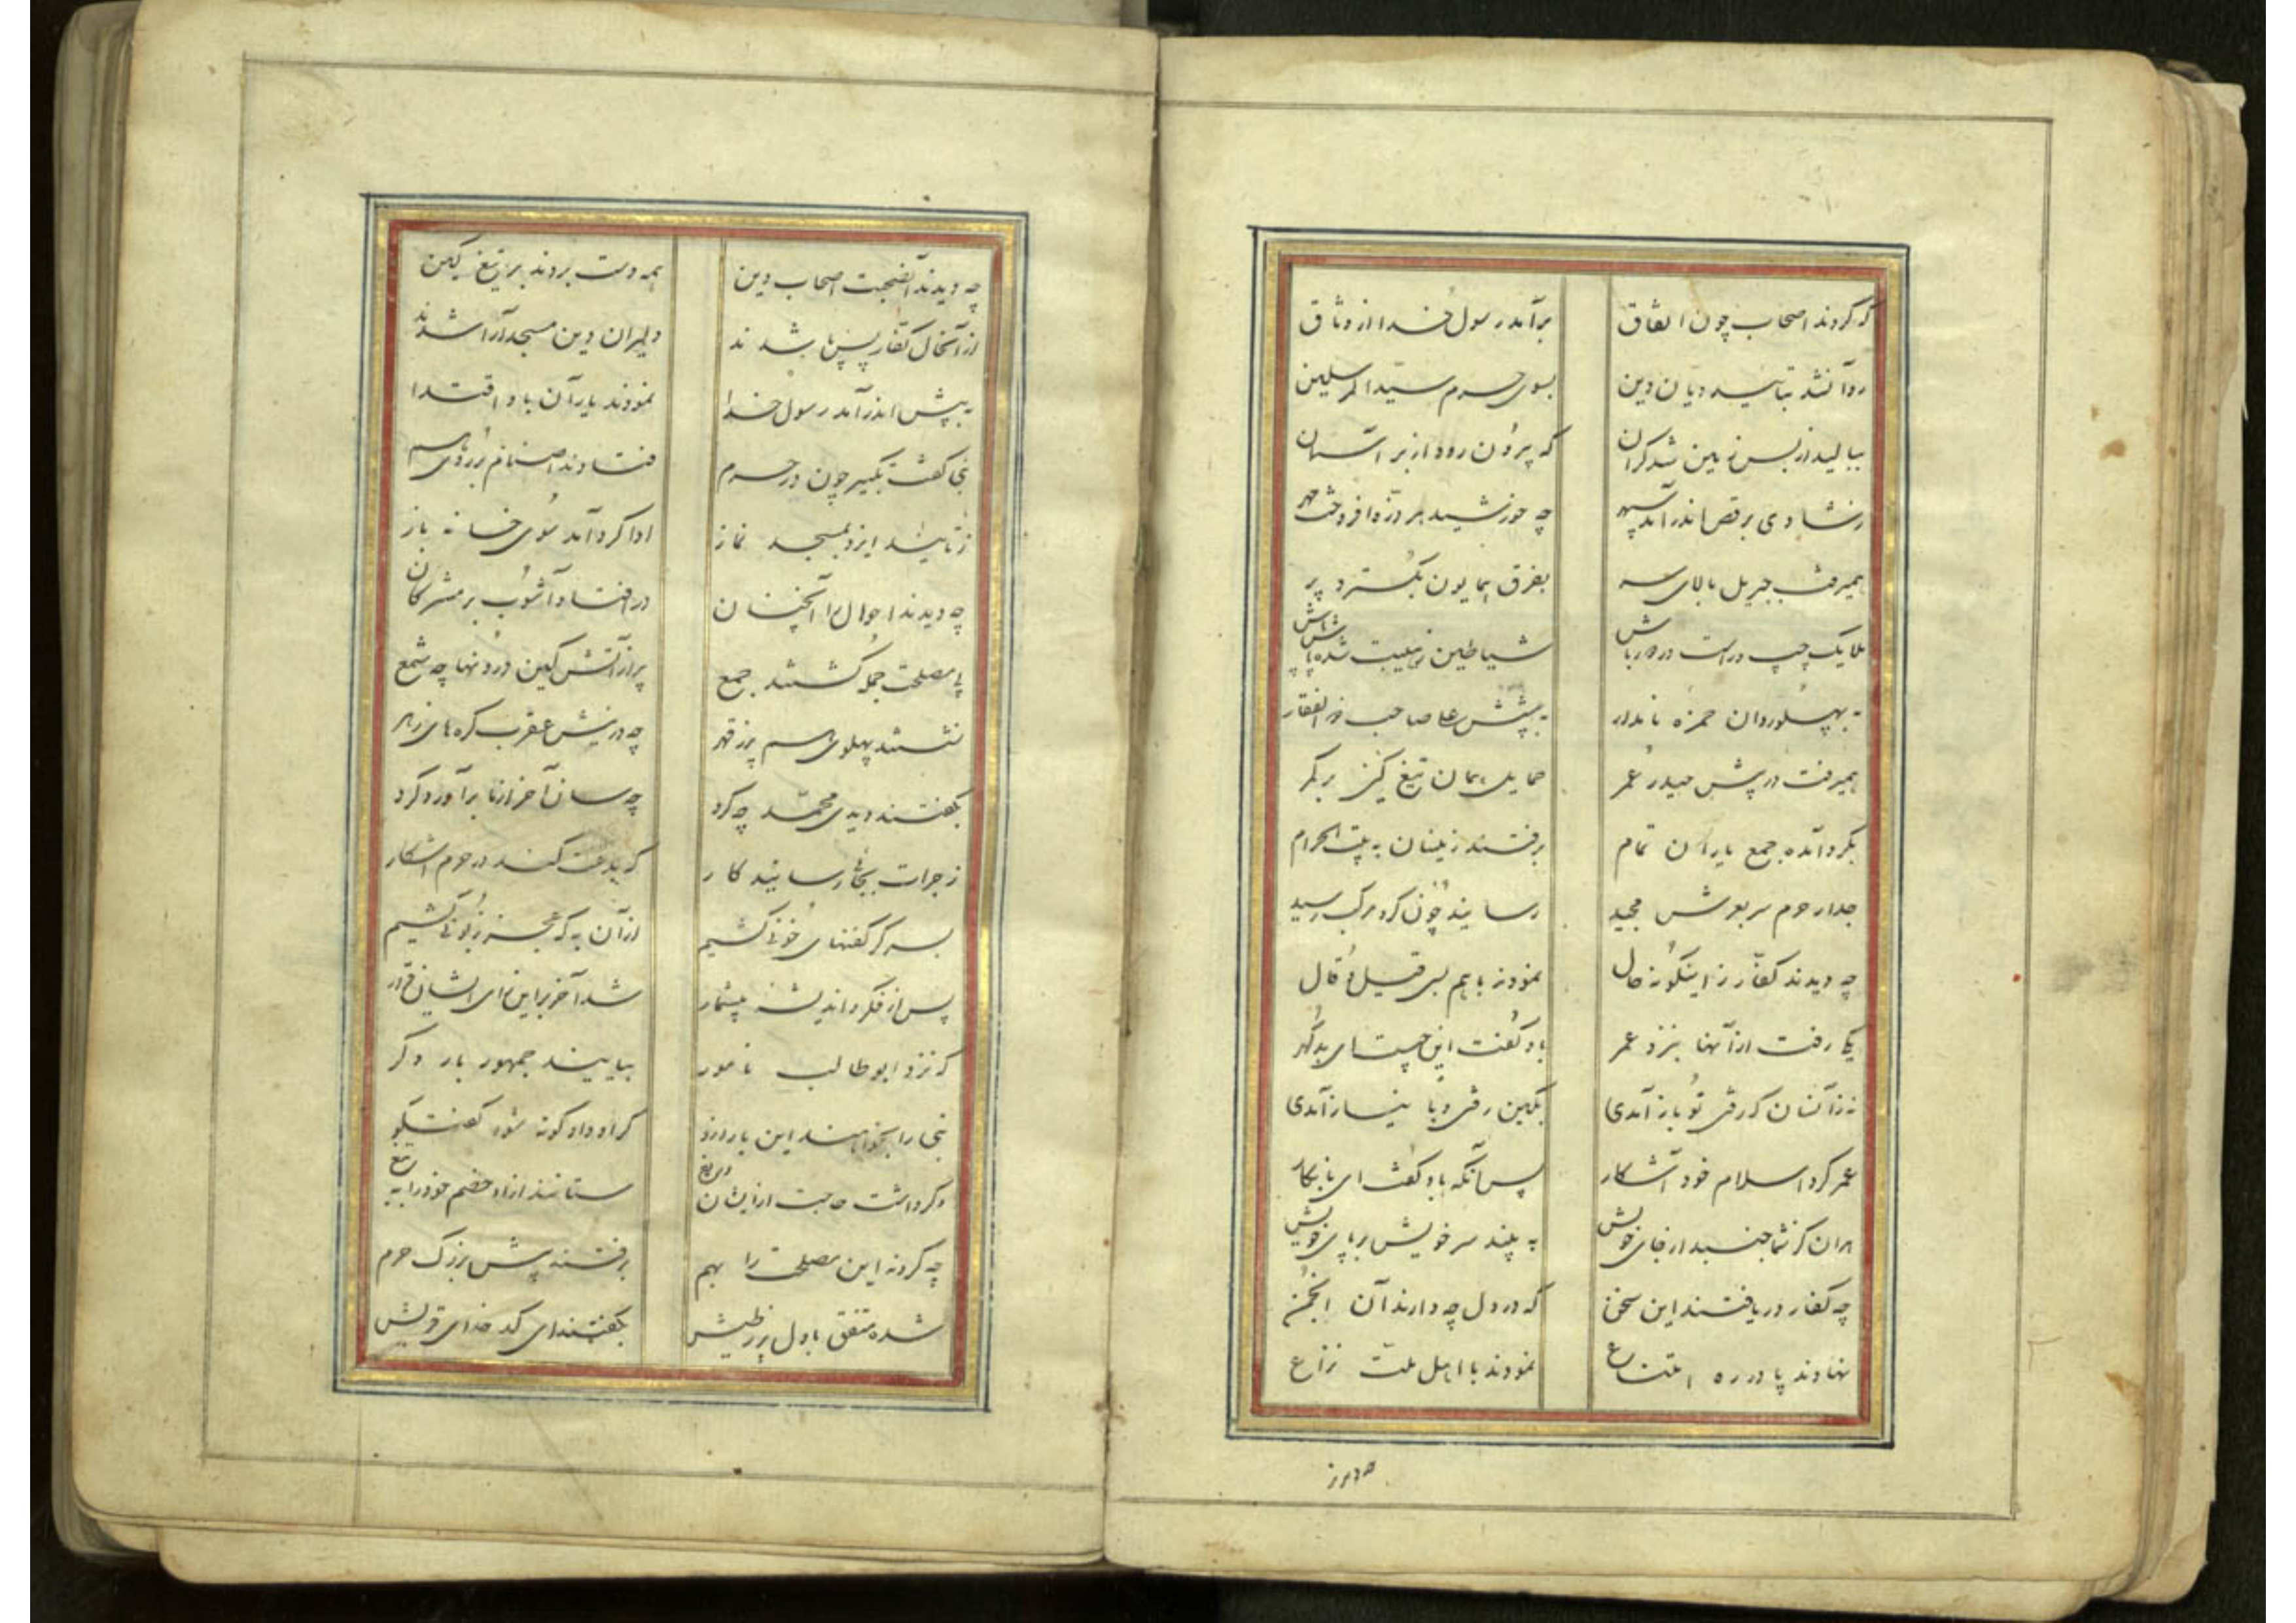 که کردند اصحاب چون اتفاق برآمد رسول خدا از وثاق
روانشد بتائید دیان دین بسوی حرم سید المرسلین
ببالید از بس زمین شد کران که بیرون رود از بر آسمان
ز شادی برقص اندر آمد سپهر چه خورشید هر ذره افروخت مهر
همیرفت جبریل بالای سر بفرق همایون بگسترد پر
ملایک چپ و راست در دورباش شیاطین ز هیبت شده پاش پاش
به پهلو روان حمزه نامدار به پیشش علی صاحب ذو الفقار
همیرفت در پیش حیدر عمر حمایل همان تیغ کین بر کمر
بگرد آمده جمع یاران تمام برفتند زینسان به بیت الحرام
جدار حرم سر بعرش مجید رسانید چون کرد مرکب رسید
چه دیدند کفار ز اینگونه حال نمودند باهم بسی قیل و قال
یکی رفت از آنها بنزد عمر باو گفت این چیست ای بدگهر
نه زآنسان که رفتی تو باز آمدی بکین رفتی و با نیاز آمدی
عمر کرد اسلام خود آشکار پس آنکه باو گفت ای نابکار
هران کز شما جنبد از جای خویش به بیند سر خویش بر پای خویش
چه کفار دریافتند این سخن که در دل چه دارند آن انجمن
نهادند پا در ره امتناع نمودند با اهل ملت نزاع
چه دیدند آنضجت اصحاب دین همه دست بردند بر تیغ کین
از آنحال کفار پس پا شدند دلیران دین مسجد آرا شدند
به پیش اندر آمد رسول خدا نمودند یاران باو اقتدا
نبی گفت تکبیر چون در حرم فتادند اصنام بر روی هم
ز تائید ایزد بمسجد نماز ادا کرد آمد سوی خانه باز
چه دیدند احوال را آنچنان در افتاد آشوب بر مشرکان
پی مصلحت جمله گشتند جمع پر از آتش کین درونها چه شمع
نشستند پهلوی هم پر ز قهر چه در نیش عقرب گره های زهر
بگفتند دیدی محمد چه کرد چه سان آخر از ما برآورد گرد
ز جرات بجائی رسانید کار که بدعت کند در حرم آشکار
بسر کر کفنهای خونی کشیم از آن به که عجز و زبونی کشیم
پس از فکر و اندیشه بیشمار شد آخر بر این رای ایشان قرار
که نزد ابو طالب نامور بیایند جمهور بار دگر
نبی را بخواهند این بار ازو کر او داد کونه شود گفتگو
وگر داشت حاجت از ایشان دریغ ستانند از او خصم خود را به تیغ
چه کردند این مصلحت را بهم برفتند پیش بزرگ حرم
شده متفق با دل پر ز طیش بگفتند ای کدخدای قریش